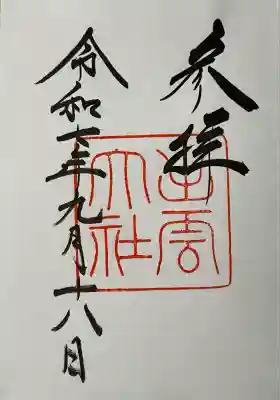 参拝
出雲
大社
令和七年九月十八日